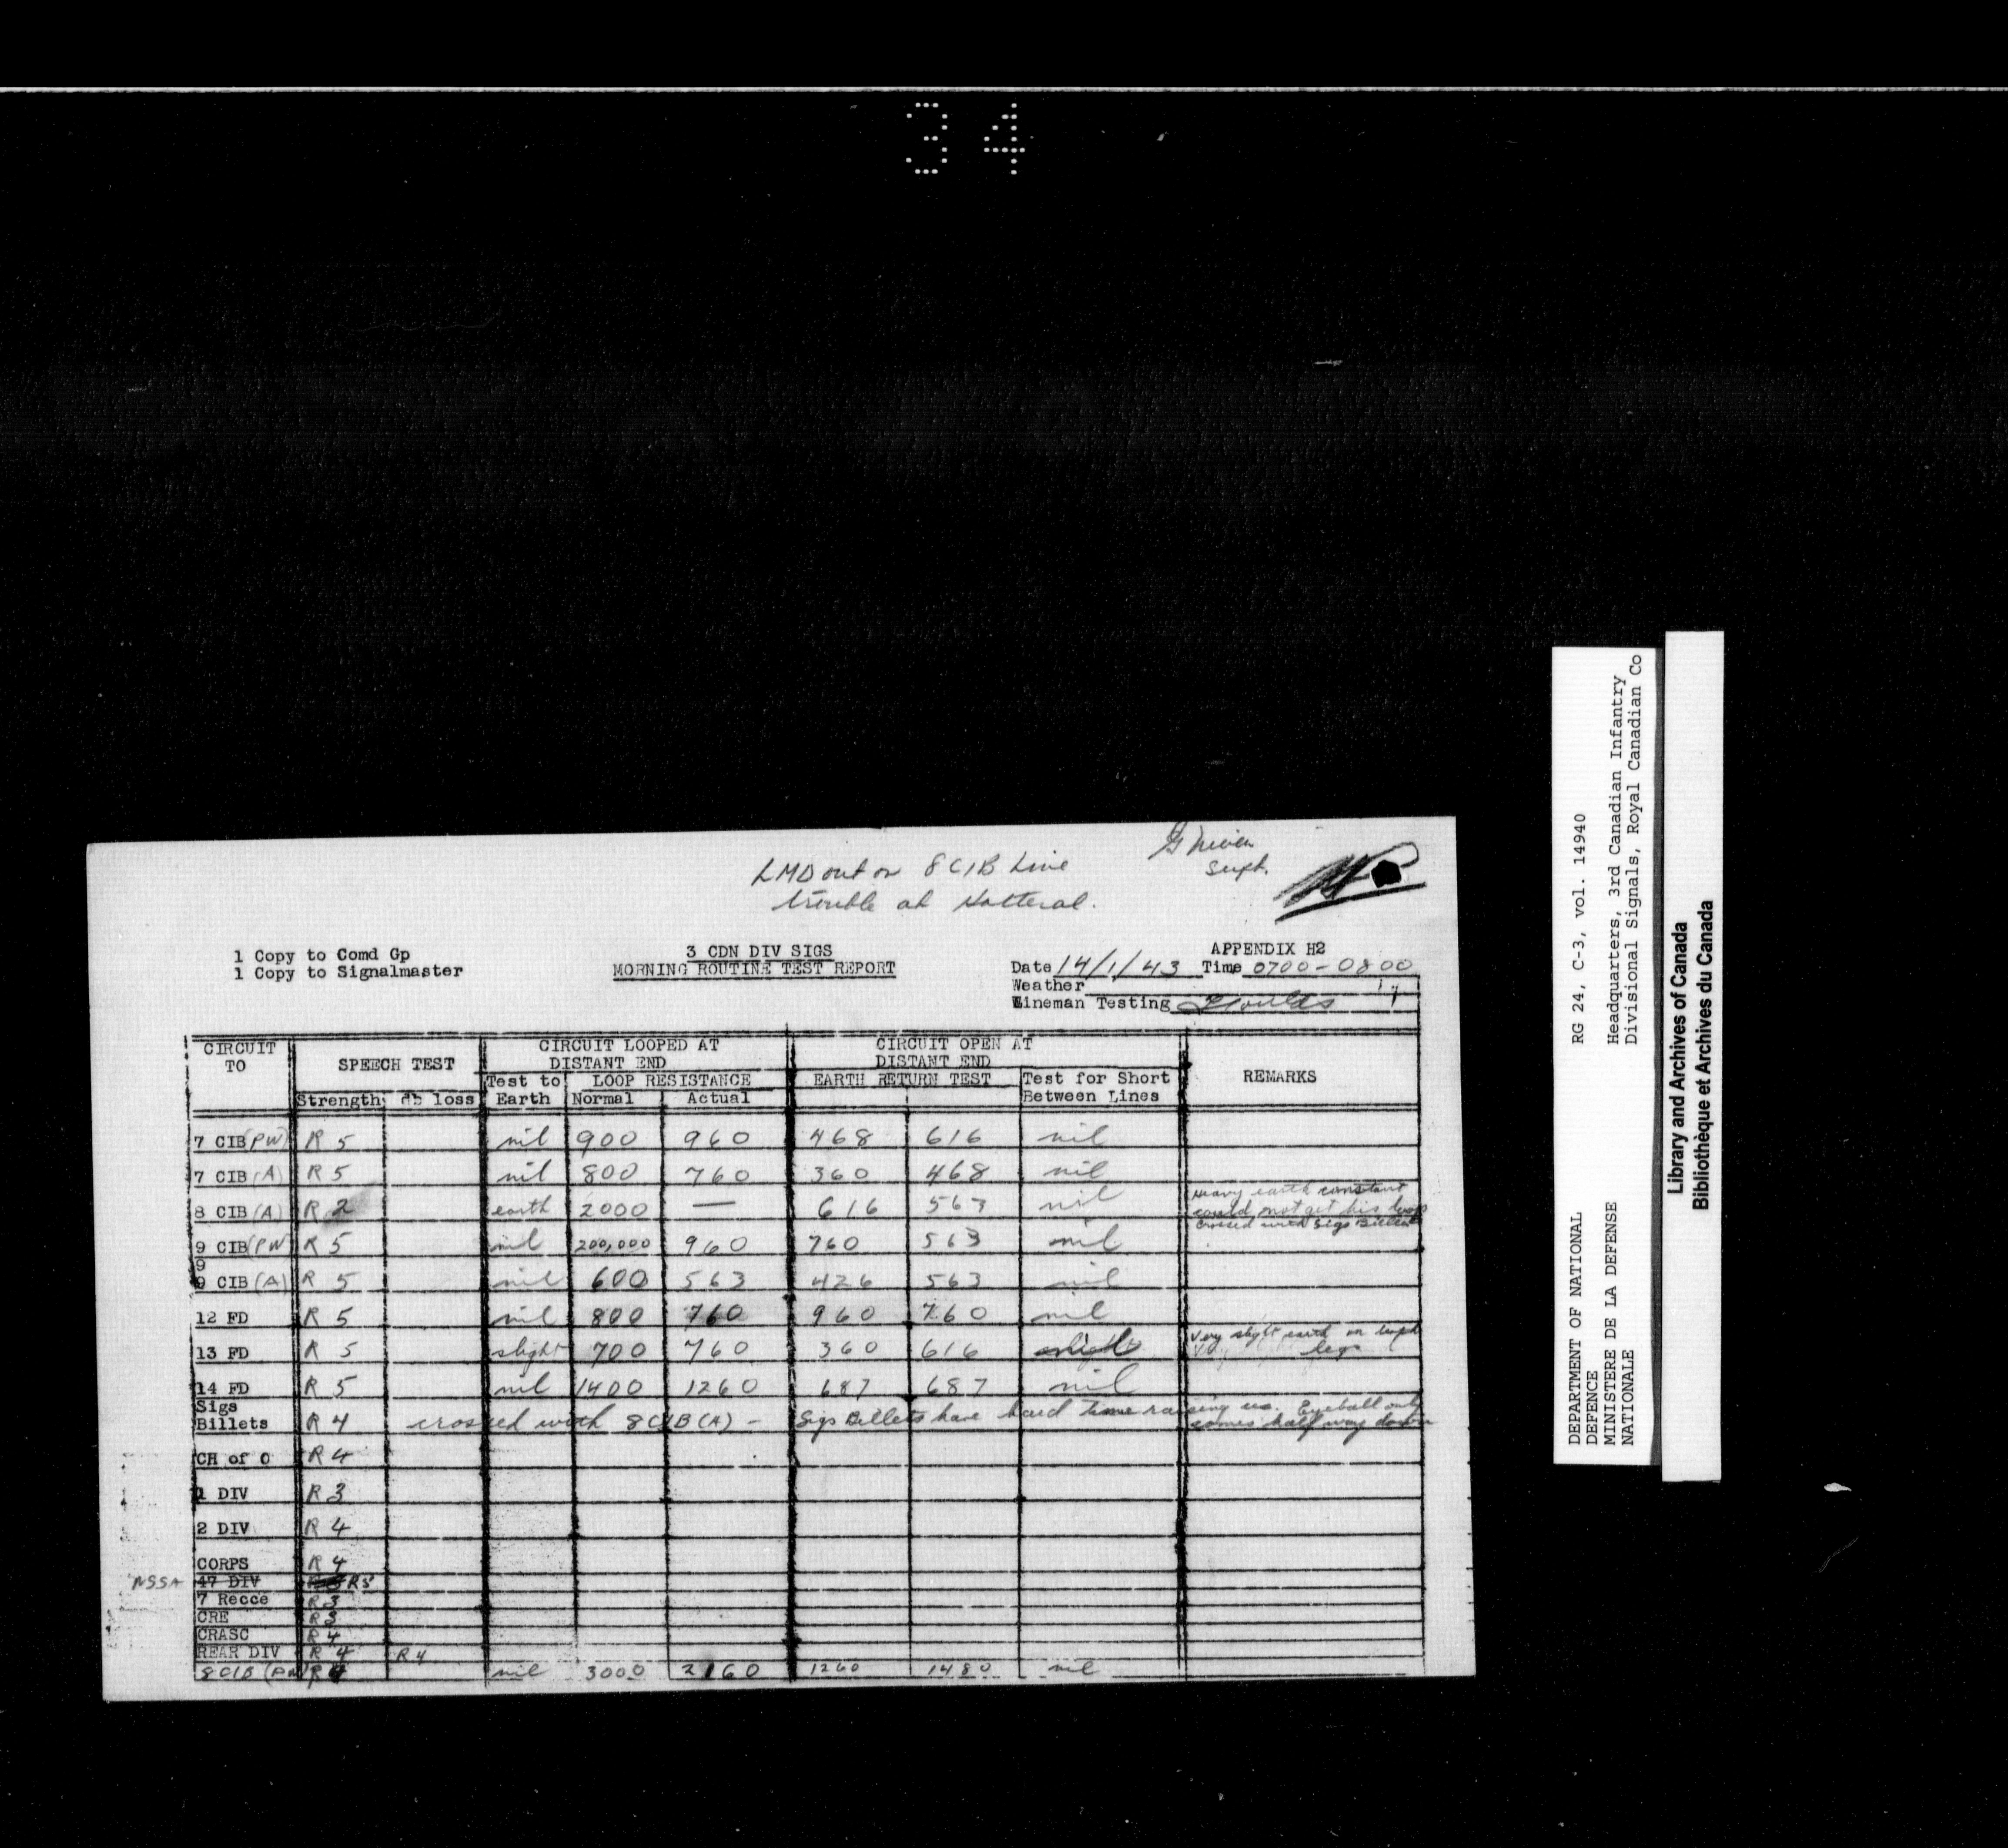 34
Sigs.
LMD out on 8 CIB Line
trouble at
1 Copy to Comd Gp
1 Copy to Signalmaster
3 CDN DIV SIGS
MORNING ROUTINE TEST REPORT
APPENDIX H2
Date 14/1/43 Time 0700-0800
Weather
Lineman Testing
CIRCUIT TO
SPEECH TEST
CIRCUIT LOOPED AT DISTANT END
CIRCUIT OPEN AT DISTANT END
REMARKS
Test to Earth
LOOP RESISTANCE
EARTH RETURN TEST
Test for Short Between Lines
Strength db loss Normal Actual
7 CIB (PW) R 5 nil 900 960 468 616 nil
7 CIB (A) R 5 nil 800 760 360 468 nil
8 CIB (A) R 2 earth 2000 — 616 563 nil Heavy earth constant could not get his loop crossed with Sigs Billets
9 CIB (PW) R 5 nil 200,000 960 760 563 nil
9
9 CIB (A) R 5 nil 600 563 426 563 nil
12 FD R 5 nil 800 760 960 760 nil
13 FD R 5 slight 700 760 360 616 slight Very slight earth on legs
14 FD R 5 nil 1400 1260 687 687 nil
Sigs Billets R 4 crossed with 8 CIB (A) - Sigs Billets have hard time raising us. Eyeball only comes half way down
CH of O R 4
1 DIV R 3
2 DIV R 4
CORPS R 4
NSSA 47 DIV R5
7 Recce R 3
CRE R 3
CRASC R 4
REAR DIV R 4 R 4
8 CIB (PW) R 4 nil 3000 2160 1260 1480 nil
DEPARTMENT OF NATIONAL
DEFENCE
MINISTERE DE LA DEFENSE
NATIONALE
RG 24, C-3, vol. 14940
Headquarters, 3rd Canadian Infantry
Divisional Signals, Royal Canadian Co
Library and Archives of Canada
Bibliothèque et Archives du Canada